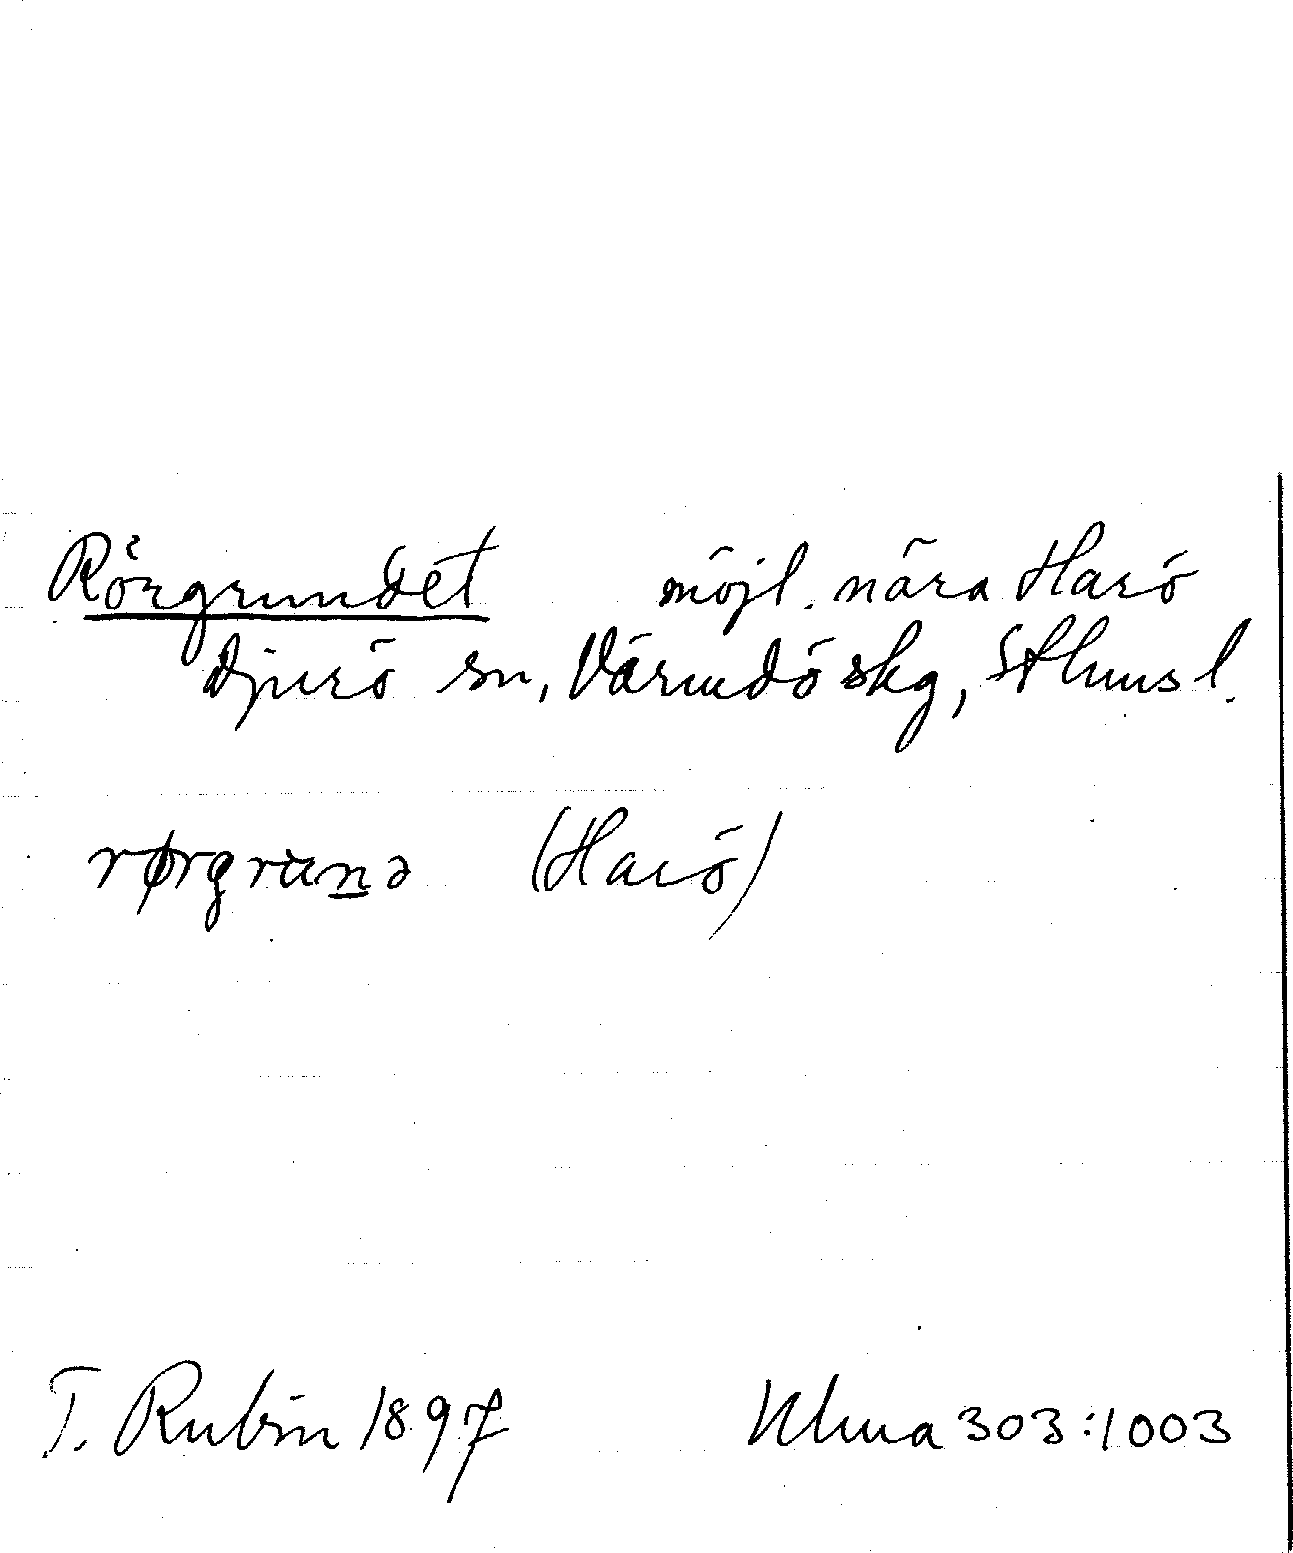 Rörgrundet möjl. nära Harö
Djurö sn, Värmdö skg, Sthms l.
rørgrunə (Harö)
T. Rubin 1897 Ulma 303:1003